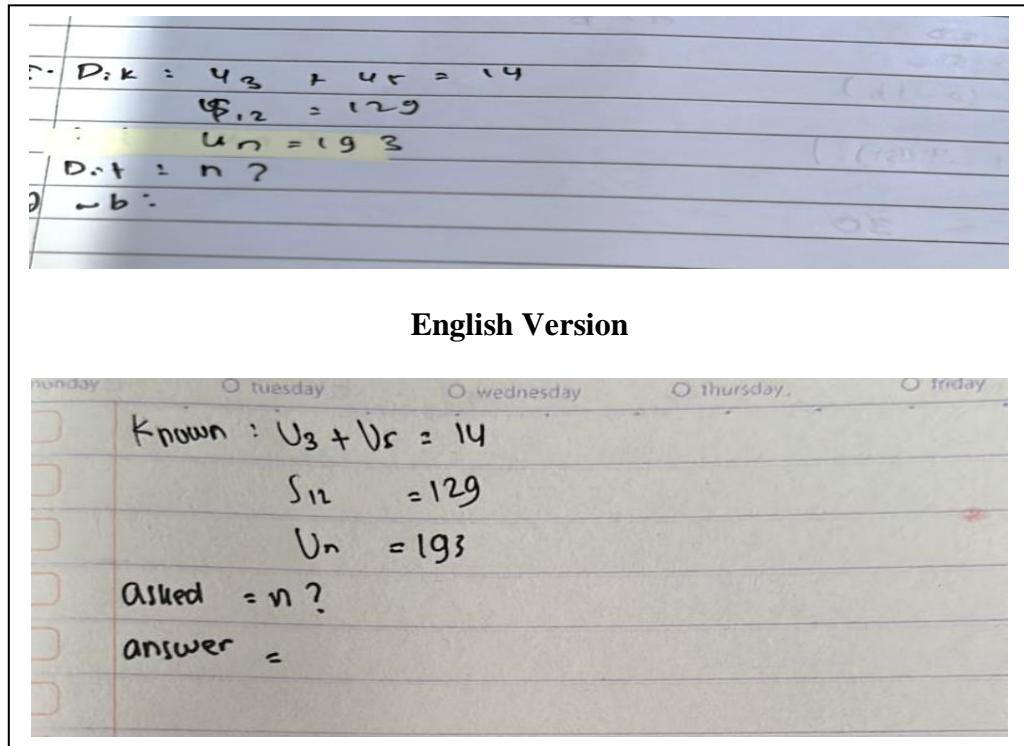 Dik : U3 + U5 = 14
S12 = 129
Un = 193
Dit : n ?
English Version
monday tuesday wednesday thursday. friday
Known : U3 + U5 = 14
S12 = 129
Un = 193
asked = n ?
answer =